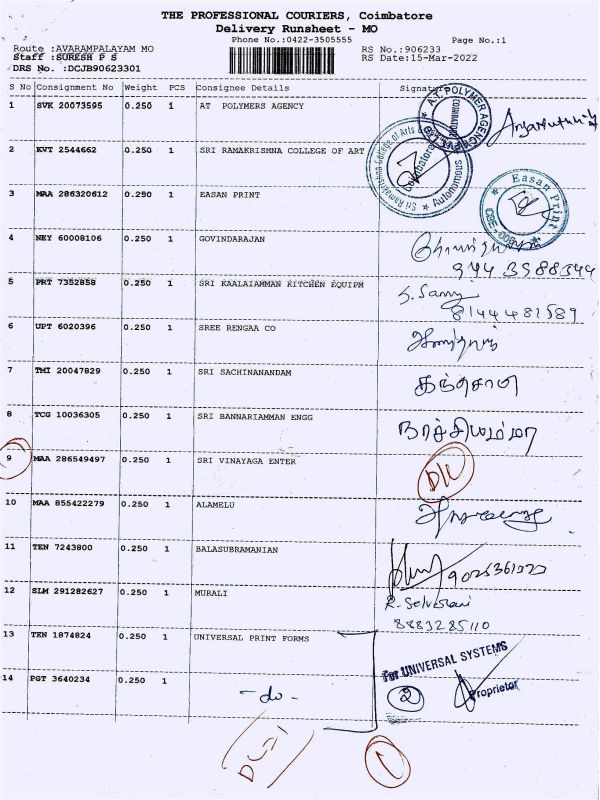 THE PROFESSIONAL COURIERS, Coimbatore
Delivery Runsheet - MO
Phone No.:0422-3505555
Page No.:1
Route :AVARAMPALAYAM MO
RS No.:906233
Staff :SURESH P S
RS Date:15-Mar-2022
DRS No. :DCJB90623301
S No Consignment No Weight PCS Consignee Details Signature
1 SVK 20073595 0.250 1 AT POLYMERS AGENCY
A.T. POLYMER AGENCY
COIMBATORE
2 KVT 2544662 0.250 1 SRI RAMAKRISHNA COLLEGE OF ART
Sri Ramakrishna College of Arts
Coimbatore
Autonomous
3 MAA 286320612 0.250 1 EASAN PRINT
Easan Print
4 NEY 60008106 0.250 1 GOVINDARAJAN
5 PRT 7352858 0.250 1 SRI KAALAIAMMAN KITCHEN EQUIPM
8144481589
6 UPT 6020396 1 0.250 SREE RENGAA CO
7 TMI 20047829 0.250 1 SRI SACHINANANDAM
கந்சாமி
8 TCG 10036305 0.250 1 SRI BANNARIAMMAN ENGG
நாச்சியம்மா
9 MAA 286549497 0.250 1 SRI VINAYAGA ENTER
10 MAA 855422279 0.250 1 ALAMELU
11 TEN 7243800 0.250 1 BALASUBRAMANIAN
12 SLM 291282627 0.250 1 MURALI
R. Selvarani
8883285110
13 TEN 1874824 0.250 1 UNIVERSAL PRINT FORMS
For UNIVERSAL SYSTEMS
14 PGT 3640234 0.250 1 -do-
2 Proprietor
1